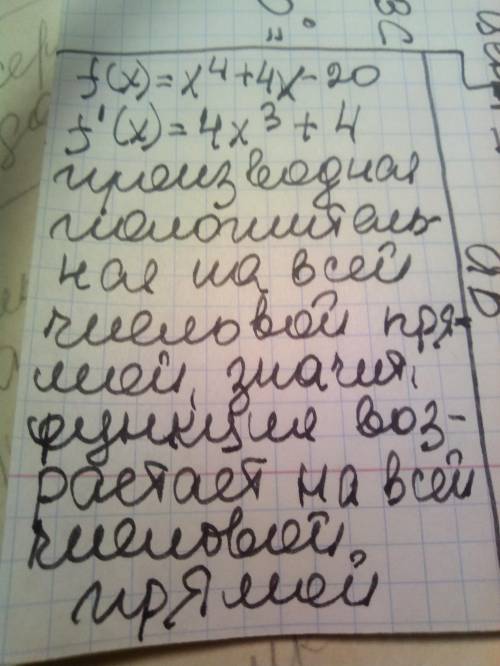 f(x)=x⁴+4x-20
f'(x)=4x³+4
производная
положитель-
ная на всей
числовой пря-
мой, значит,
функция воз-
растает на всей
числовой
прямой
ВС